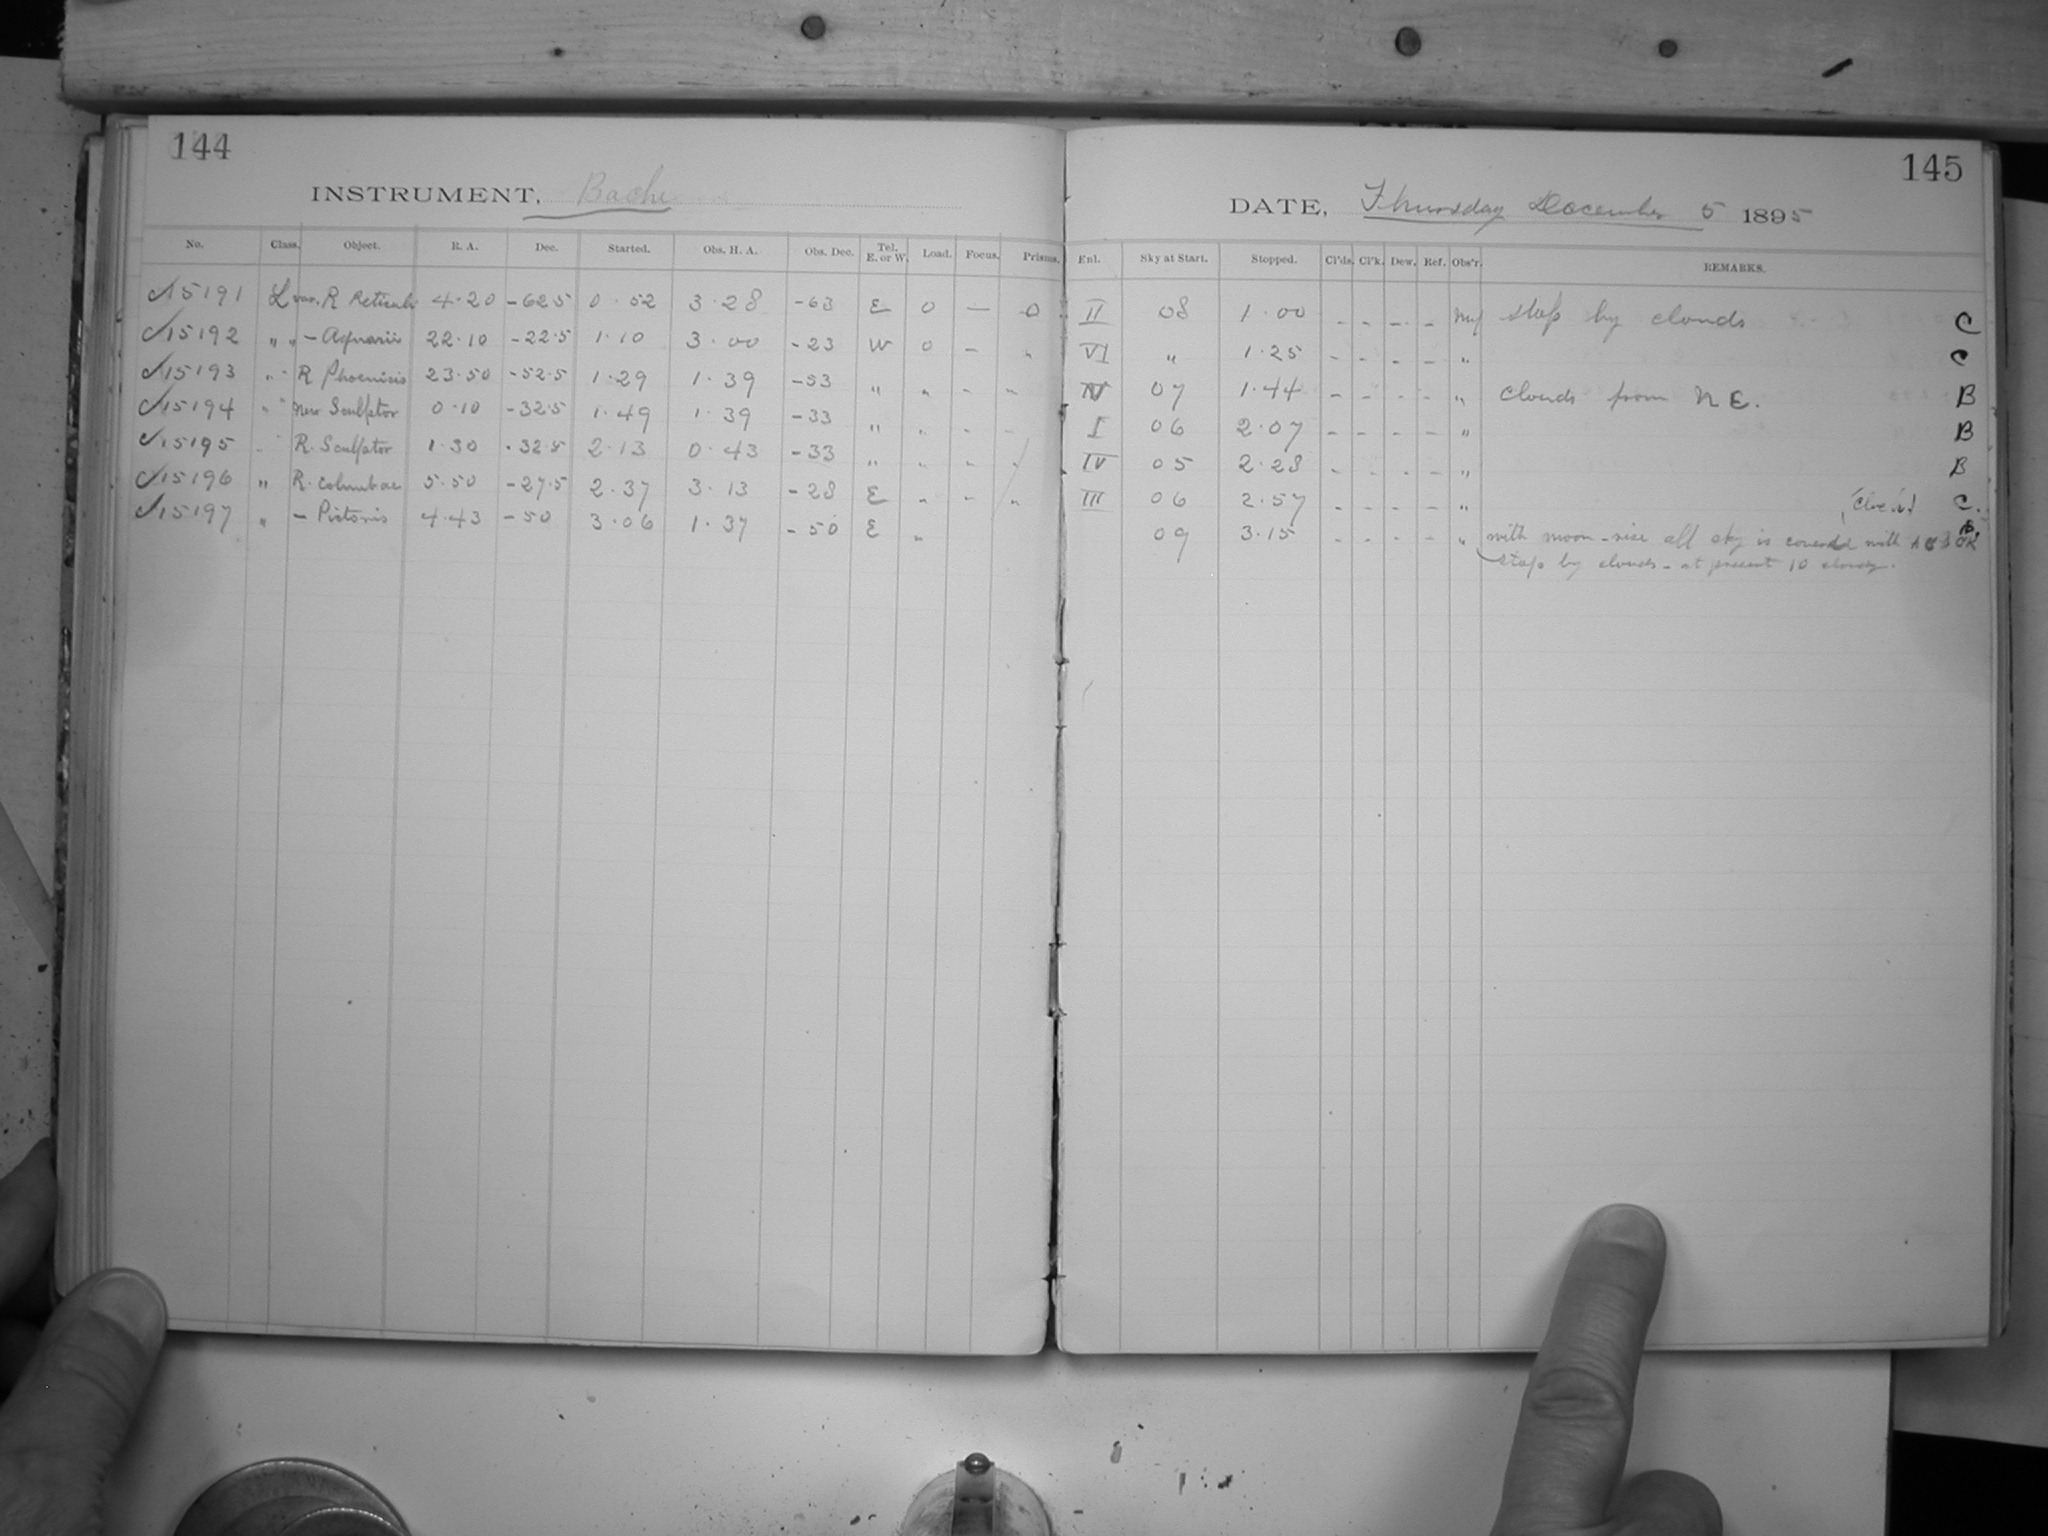 144
INSTRUMENT, Bache
No. Class. Object. R. A. Dec. Started. Obs. H. A. Obs. Dec. Tel. E. or W. Load. Focus. Prisms.
√15191 L var. R Reticuli 4·20 -62·5 0·52 3·28 -63 E 0 — 0
√15192 " " - Aquarii 22·10 -22·5 1·10 3·00 -23 W 0 - "
√15193 " " R Phoenicis 23·50 -52·5 1·29 1·39 -53 " " - "
√15194 " " new Sculptor 0·10 -32·5 1·49 1·39 -33 " " - -
√15195 " R. Sculptor 1·30 -32·5 2·13 0·43 -33 " " - "
√15196 " R. Columbae 5·50 -27·5 2·37 3·13 -28 E " - "
√15197 " - Pictoris 4·43 -50 3·06 1·37 -50 E "
145
DATE, Thursday December 5 1895
Enl. Sky at Start. Stopped. Cl'ds. Cl'k. Dew. Ref. Obs'r. REMARKS.
II 08 1·00 - - - - stop by clouds C
VI " 1·25 - - - - " C
IV 07 1·44 - - - - " clouds from N E. B
I 06 2·07 - - - - " B
IV 05 2·28 - - - - " B
III 06 2·57 - - - - " C.
09 3·15 - - - - " with moon-rise all sky is covered with
stop by clouds - at present 10 cloudy.